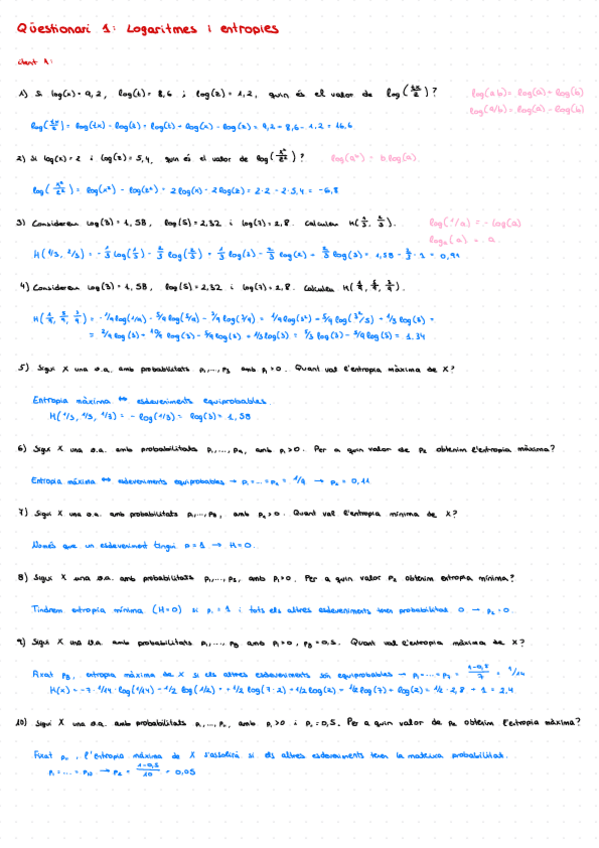 Qüestionari 1: Logaritmes i entropies
1) Si log(x) = 9,2, log(t) = 8,6 i log(z) = 1,2, quin és el valor de log(tx/z)? log(ab) = log(a) + log(b)
log(a/b) = log(a) - log(b)
log(tx/z) = log(tx) - log(z) = log(t) + log(x) - log(z) = 9,2 + 8,6 - 1,2 = 16,6
2) Si log(x) = 2 i log(z) = 5,4, quin és el valor de log(x²/z²)? log(aᵇ) = b log(a)
log(x²/z²) = log(x²) - log(z²) = 2 log(x) - 2 log(z) = 2·2 - 2·5,4 = -6,8
3) Considerem log(3) = 1,58, log(5) = 2,32 i log(7) = 2,8. Calculeu H(1/3, 2/3). log(1/a) = - log(a)
H(1/3, 2/3) = - 1/3 log(1/3) - 2/3 log(2/3) = 1/3 log(3) - 2/3 log(2) + 2/3 log(3) = 1,58 - 2/3 · 1 = 0,91
4) Considerem log(3) = 1,58, log(5) = 2,32 i log(7) = 2,8. Calculeu
5) Sigui X una v.a. amb probabilitats p₁,...,p₃ amb pᵢ>0. Quant val l'entropia màxima de X?
Entropia màxima ↔ esdeveniments equiprobables.
H(1/3, 1/3, 1/3) = - log(1/3) = log(3) = 1,58
6) Sigui X una v.a. amb probabilitats amb pᵢ>0. Per a quin valor de obtenim l'entropia màxima?
Entropia màxima ↔ esdeveniments equiprobables → = 1/9 → = 0,11
7) Sigui X una v.a. amb probabilitats amb >0. Quant val l'entropia mínima de X?
Només que un esdeveniment tingui p = 1 → H = 0.
8) Sigui X una v.a. amb probabilitats amb pᵢ>0. Per a quin valor p₂ obtenim entropia mínima?
Tindrem entropia mínima (H=0) si = 1 i tots els altres esdeveniments tenen probabilitat 0 → p₂ = 0.
9) Sigui X una v.a. amb probabilitats p₁,...,p₈ amb pᵢ>0, p₈=0,5. Quant val l'entropia màxima de X?
Fixat p₈, entropia màxima de X si els altres esdeveniments són equiprobables → p₁=...=p₇ = (1-0,5)/7 = 1/14
H(x) = -7 · 1/14 · log(1/14) - 1/2 log(1/2) = +1/2 log(7·2) + 1/2 log(2) = 1/2 log(7) + log(2) = 1/2 · 2,8 + 1 = 2,4
10) Sigui X una v.a. amb probabilitats amb pᵢ>0 i = 0,5. Per a quin valor de obtenim l'entropia màxima?
Fixat l'entropia màxima de X s'assoleix si els altres esdeveniments tenen la mateixa probabilitat.
(1-0,5)/10 = 0,05